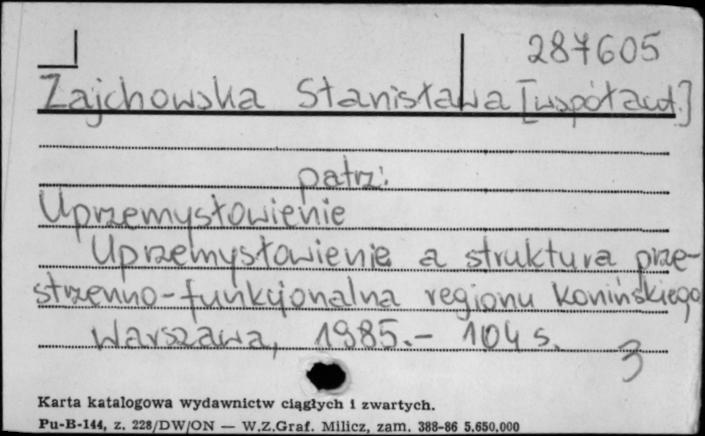 287605
Zajchowska Stanisława [współaut.]
patrz:
Uprzemysłowienie
Uprzemysłowienie a struktura prze-
strzenno-funkcjonalna regionu konińskiego
Warszawa, 1985.- 104 s.
3
Karta katalogowa wydawnictw ciągłych i zwartych.
Pu-B-144, z. 228/DW/ON — W.Z.Graf. Milicz, zam. 388-86 5.650.000